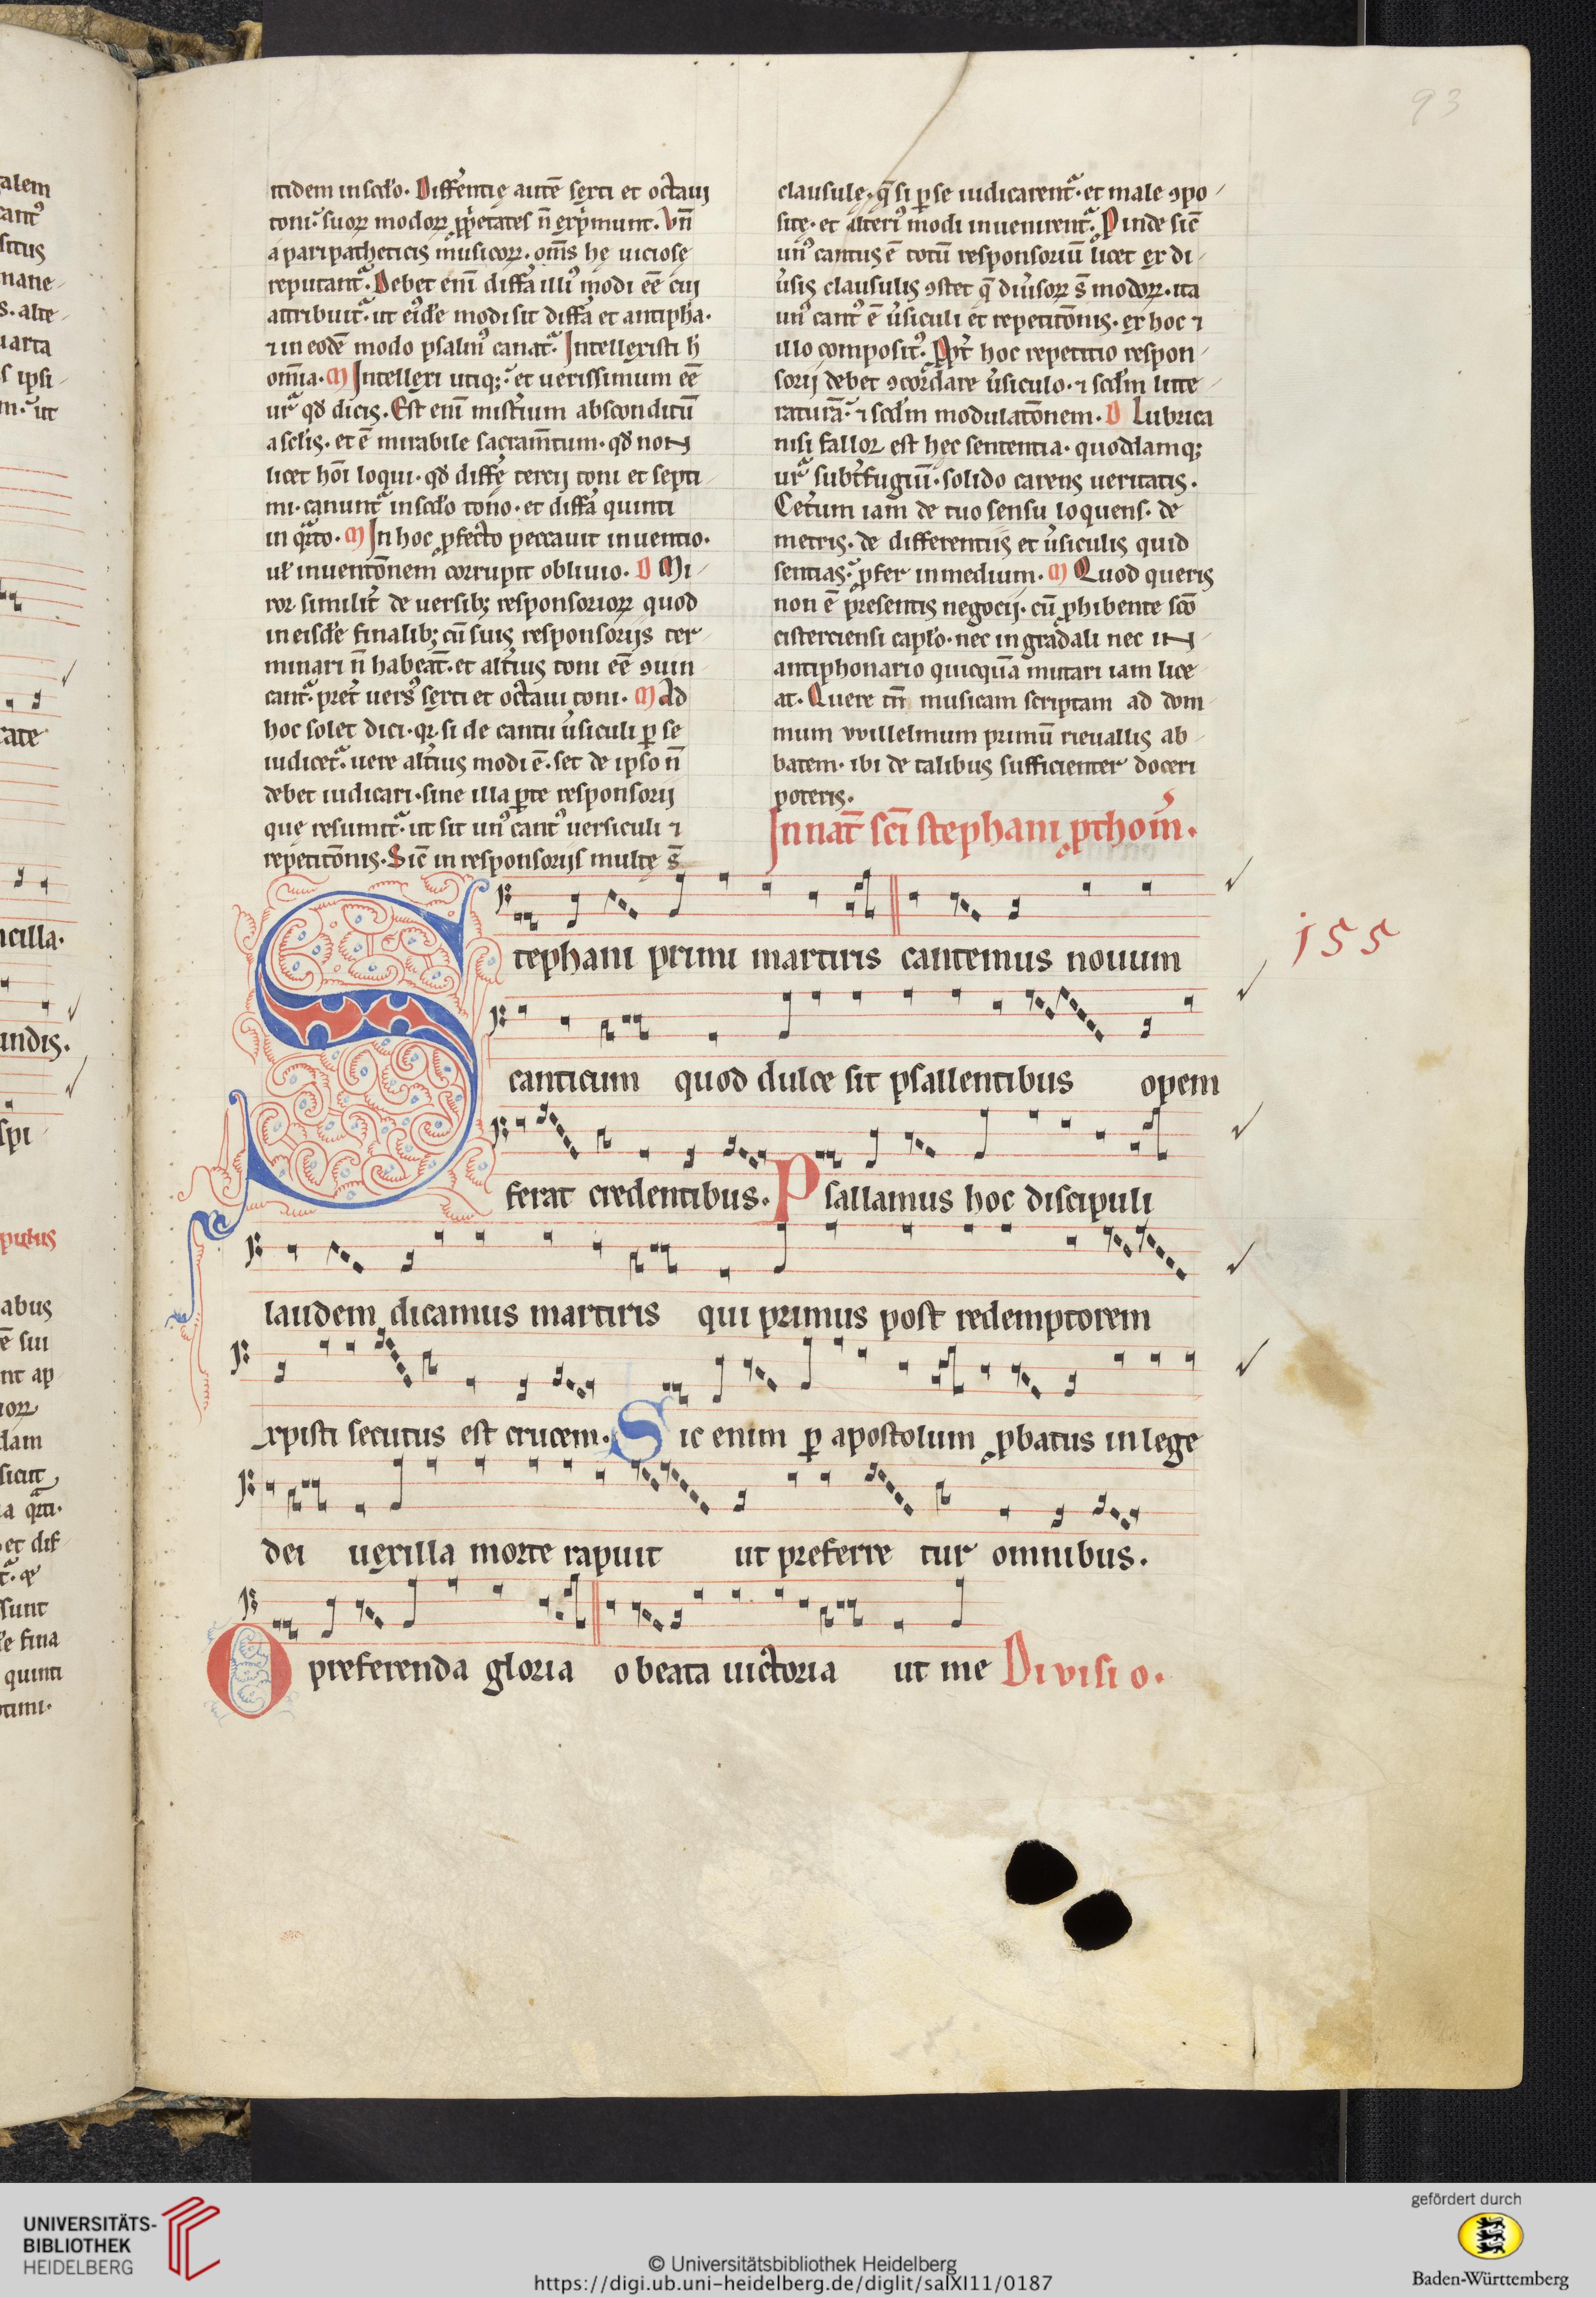 93
itidem in sclo̅. Differ̅entię aute̅ sexti et octaui
toni. suoꝝ modoꝝ ꝓprietates n̅ exprimunt. Vn̅
a paripatheticis musicoꝝ. om̅s hę uiciosę
reputant᷑. Debet eni̅ differ̅a illiꝰ modi ee̅ cui
attribuit᷑. ut eiꝰde̅ modi sit differ̅a et antipha̅.
⁊ in eode̅ modo psalmꝰ canat᷑. Intellexisti h̅
om̅ia. M Intellexi utiqꝫ. et uerissimum ee̅
ur̅a qd̅ dicis. Est eni̅ mist̅ium absconditu̅
a sclis̅. et e̅ mirabile sacram̅tum. qd̅ non
licet ho̅i loqui. qd̅ differ̅ę tercii toni et septi-
mi. canunt᷑ in sclo̅ tono. et differ̅a quinti
in qᷓrto. M In hoc ꝓfecto peccauit inuentio.
ul̅ inuento̅nem corrupit obliuio. D Mi-
ror similit̅ de uersibꝫ responsorioꝝ quod
in eisde̅ finalibꝫ cu̅ suis responsoriis ter-
minari n̅ habeat̅. et alt̅ius toni ee̅ ꝯuin-
cant᷑. pret̅ uersꝰ sexti et octaui toni. M Ad
hoc solet dici. qr̅ si de cantu u̅siculi ꝑ se
iudicet᷑. uere alt̅ius modi e̅. set de ipso n̅
debet iudicari. sine illa ꝑte responsorii
quę resumit᷑. ut sit unꝰ cantꝰ uersiculi ⁊
repetito̅nis. Sic̅ in responsoriis multę s̅
clausule. q̅ si ꝑ se iudicarent᷑. et male ꝯpo-
sitę. et alteriꝰ modi inuenirent᷑. Pinde sic̅
unꝰ cantus e̅ totu̅ responsoriu̅ licet ex di-
u̅sis clausulis ꝯstet q̅ diu̅soꝝ s̅ modoꝝ. ita
unꝰ cantꝰ e̅ u̅siculi et repetito̅nis. ex hoc ⁊
illo compositꝰ. Ppt̅ hoc repetitio respon-
sorii debet ꝯcordare u̅siculo. ⁊ scd̅m litte-
ratura̅. ⁊ scd̅m modulato̅nem. D Lubrica
nisi fallor est hec sententia. quoddamqꝫ
ur̅a subt̅fugiu̅. solido carens ueritatis.
Cet̅um iam de tuo sensu loquens. de
metris. de differentiis et u̅siculis quid
sentias. ꝓfer in medium. M Quod queris
non e̅ p̅resentis negocii. cu̅ ꝓhibente sco̅
cisterciensi caplo̅. nec in gradali nec in
antiphonario quicqua̅ mutari iam lice-
at. Quere tn̅ musicam scriptam ad dom-
mum vvillelmum primu̅ rieuallis ab-
batem. ibi de talibus sufficienter doceri
poteris.
In nat̅ sci̅ stephani ꝓthom̅.
Stephani primi martiris cantemus nouum
155
canticum quod dulce sit psallentibus opem
ferat credentibus. Psallamus hoc discipuli
laudem dicamus martiris qui primus post redemptorem
xpisti secutus est crucem. Sic enim ꝑ apostolum ꝓbatus in lege
dei uexilla morte rapuit ut preferre tur omnibus.
O preferenda gloria o beata uictoria ut me Divisio.
UNIVERSITÄTS-
BIBLIOTHEK
HEIDELBERG
© Universitätsbibliothek Heidelberg
https://digi.ub.uni-heidelberg.de/diglit/salXI11/0187
gefördert durch
Baden-Württemberg